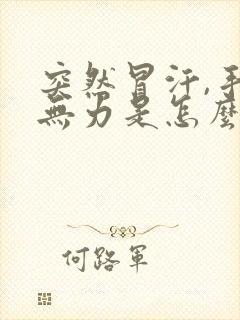 突然冒汗,手
無力是怎麼
何路軍